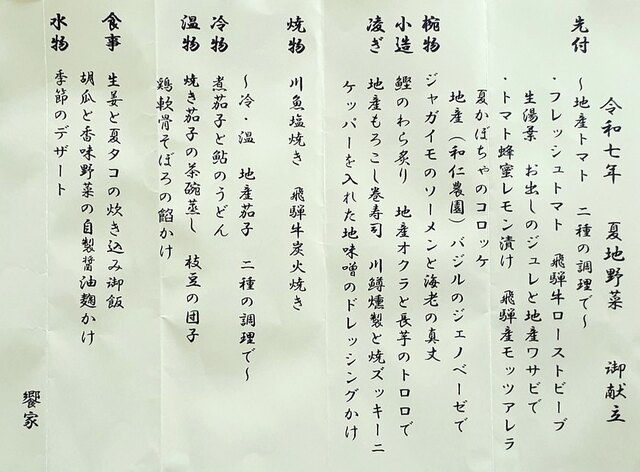 令和七年 夏地野菜 御献立
先付 〜地産トマト 二種の調理で〜
・フレッシュトマト 飛騨牛ローストビーフ
生湯葉 お出しのジュレと地産ワサビで
・トマト蜂蜜レモン漬け 飛騨産モッツアレラ
夏かぼちゃのコロッケ
地産(和仁農園)バジルのジェノベーゼで
椀物 ジャガイモのソーメンと海老の真丈
小造 鰹のわら炙り 地産オクラと長芋のトロロで
凌ぎ 地産もろこし巻寿司 川鱒燻製と焼ズッキーニ
ケッパーを入れた地味噌のドレッシングかけ
焼物 川魚塩焼き 飛騨牛炭火焼き
〜冷・温 地産茄子 二種の調理で〜
冷物 煮茄子と鮎のうどん
温物 焼き茄子の茶碗蒸し 枝豆の団子
鶏軟骨そぼろの餡かけ
食事 生姜と夏タコの炊き込み御飯
胡瓜と香味野菜の自製醤油麹かけ
水物 季節のデザート
饗家